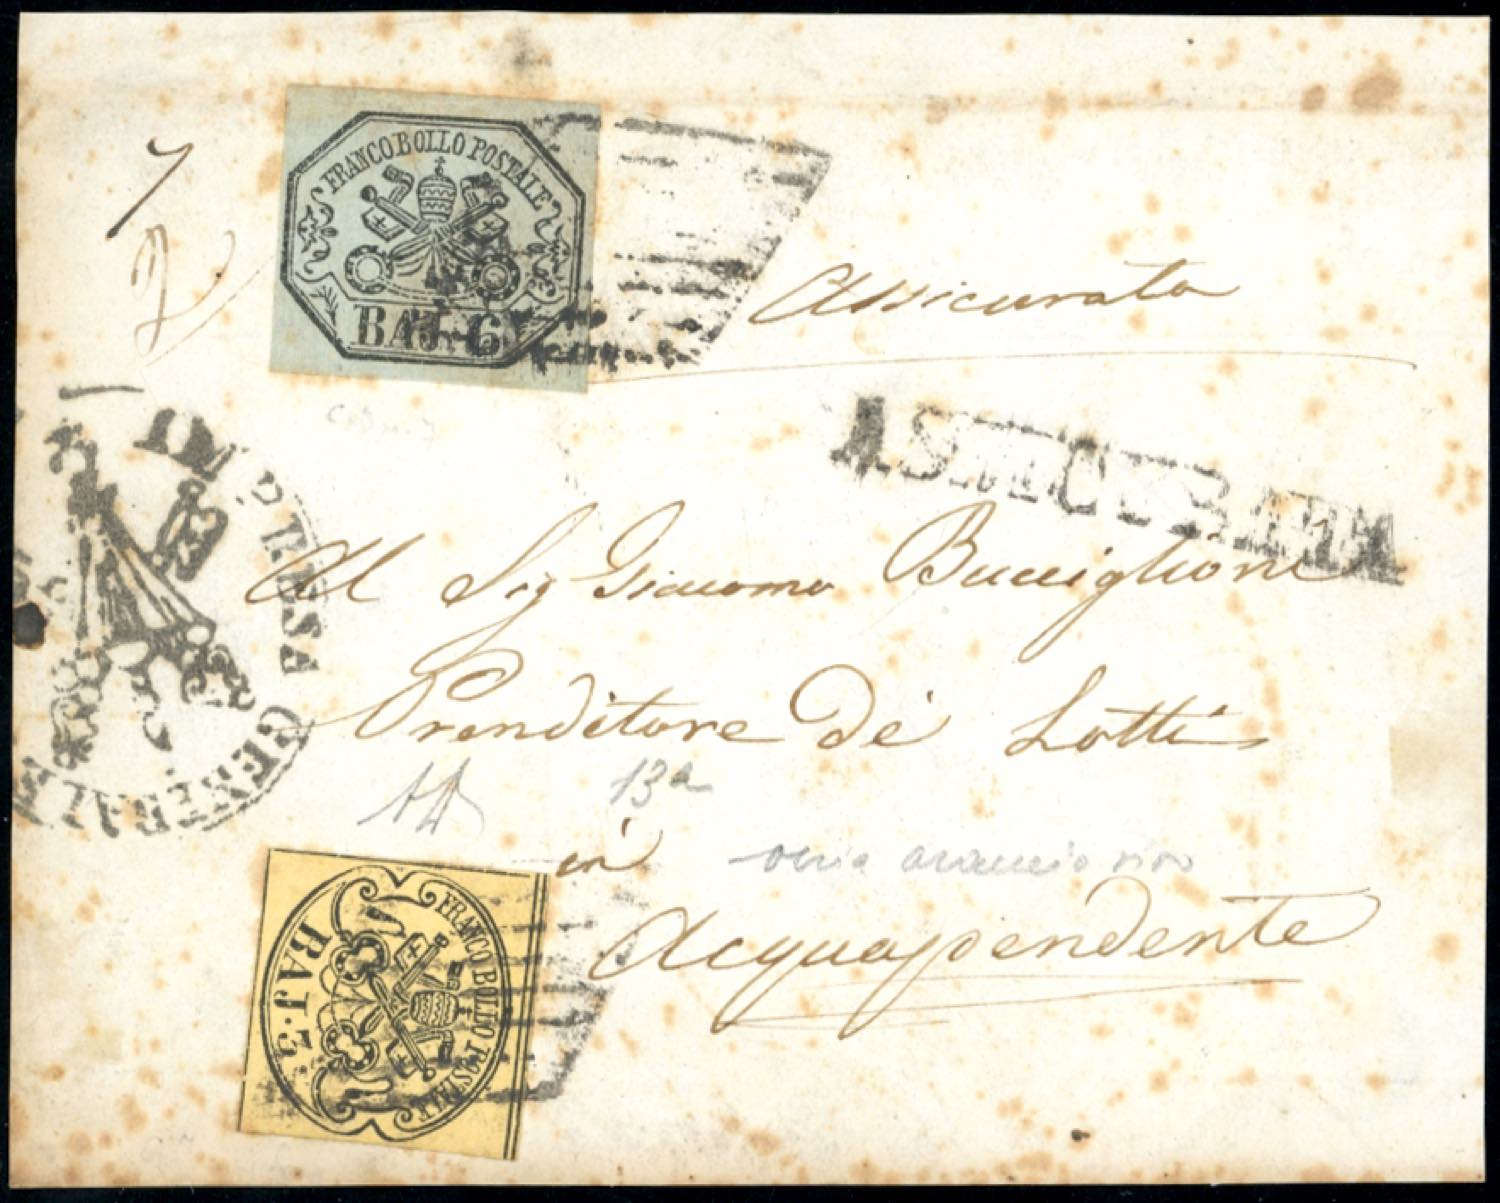 FRANCO BOLLO POSTALE
BAJ. 6
7
2
Assicurata
ASSICURATA
IMPRESA GENERALE
Al Sig Giacomo Bucciglioni
Prenditore de Lotti
13a
in
Acquapendente
arancio vivo
FRANCO BOLLO POSTALE
BAJ. 3.